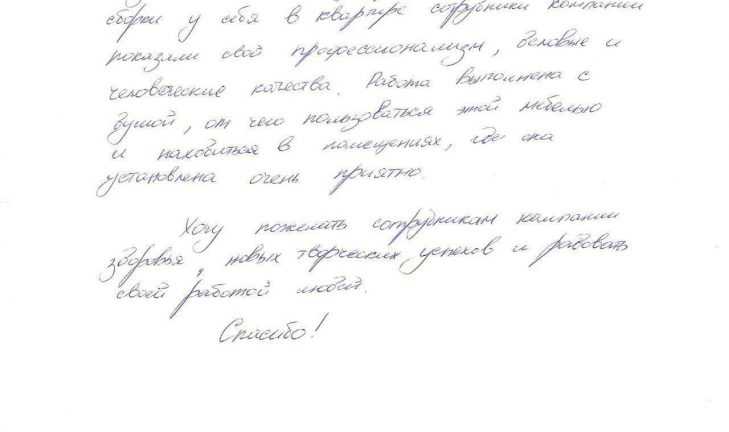 сборки у себя в квартире сотрудники компании
показали свой профессионализм, деловые и
человеческие качества. Работа выполнена с
душой, от чего пользоваться этой мебелью
и находиться в помещениях, где она
установлена очень приятно.
Хочу пожелать сотрудникам компании
здоровья, новых творческих успехов и радовать
своей работой людей.
Спасибо!